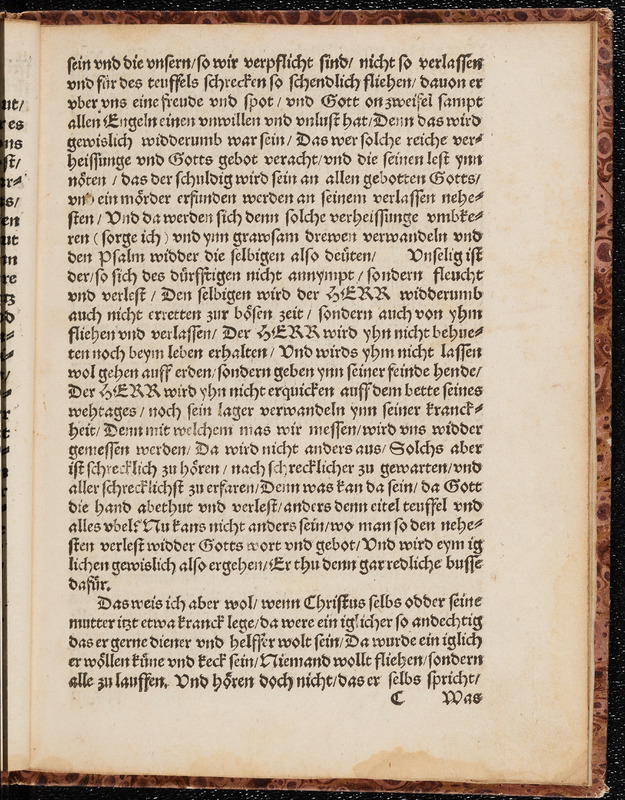 sein vnd die vnsern/ so wir verpflicht sind/ nicht so verlassen
vnd für des teuffels schrecken so schendlich fliehen/ dauon er
vber vns eine freude vnd spot / vnd Gott on zweifel sampt
allen Engeln einen vnwillen vnd vnlust hat/ Denn das wird
gewislich widderumb war sein/ Das wer solche reiche ver-
heissunge vnd Gotts gebot veracht/ vnd die seinen lest ynn
nöten / das der schuldig wird sein an allen gebotten Gotts/
vnd ein mörder erfunden werden an seinem verlassen nehe-
sten / Vnd da werden sich denn solche verheissunge vmbke-
ren ( sorge ich ) vnd ynn grawsam drewen verwandeln vnd
den Psalm widder die selbigen also deüten/ Vnselig ist
der/ so sich des dürfftigen nicht annympt / sondern fleucht
vnd verlest / Den selbigen wird der HERR widderumb
auch nicht erretten zur bösen zeit / sondern auch von yhm
fliehen vnd verlassen/ Der HERR wird yhn nicht behue-
ten noch beym leben erhalten / Vnd wirds yhm nicht lassen
wol gehen auff erden/ sondern geben ynn seiner feinde hende/
Der HERR wird yhn nicht erquicken auff dem bette seines
wehtages / noch sein lager verwandeln ynn seiner kranck-
heit/ Denn mit welchem mas wir messen/ wird vns widder
gemessen werden/ Da wird nicht anders aus/ Solchs aber
ist schrecklich zu hören / nach schrecklicher zu gewarten/ vnd
aller schrecklichst zu erfaren/ Denn was kan da sein/ da Gott
die hand abethut vnd verlest/ anders denn eitel teuffel vnd
alles vbel? Nu kans nicht anders sein/ wo man so den nehe-
sten verlest widder Gotts wort vnd gebot/ Vnd wird eym ig
lichen gewislich also ergehen/ Er thu denn gar redliche busse
dafür.
Das weis ich aber wol/ wenn Christus selbs odder seine
mutter itzt etwa kranck lege/ da were ein iglicher so andechtig
das er gerne diener vnd helffer wolt sein/ Da wurde ein iglich
er wöllen küne vnd keck sein/ Niemand wollt fliehen/ sondern
alle zu lauffen. Vnd hören doch nicht/ das er selbs spricht/
C Was